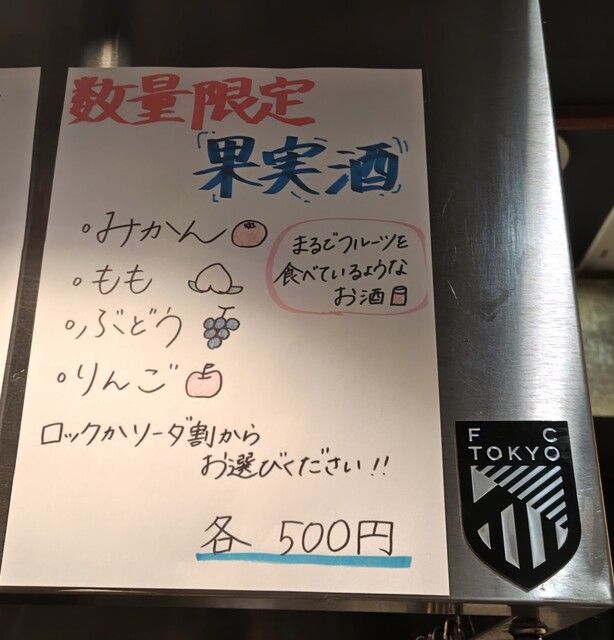 数量限定
「果実酒」
・みかん
・もも
・ぶどう
・りんご
まるでフルーツを
食べているような
お酒
ロックかソーダ割から
お選びください!!
各 500円
F C
TOKYO